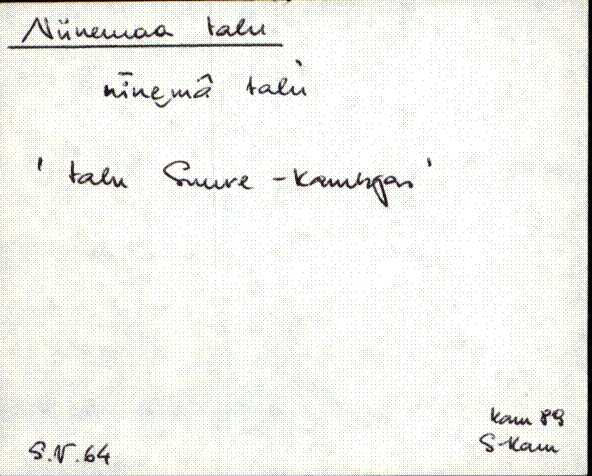 Niinemaa talu
nīnemâ talù
' talu Suure-Kambjas '
Kam 89
S-Kam
S.V.64